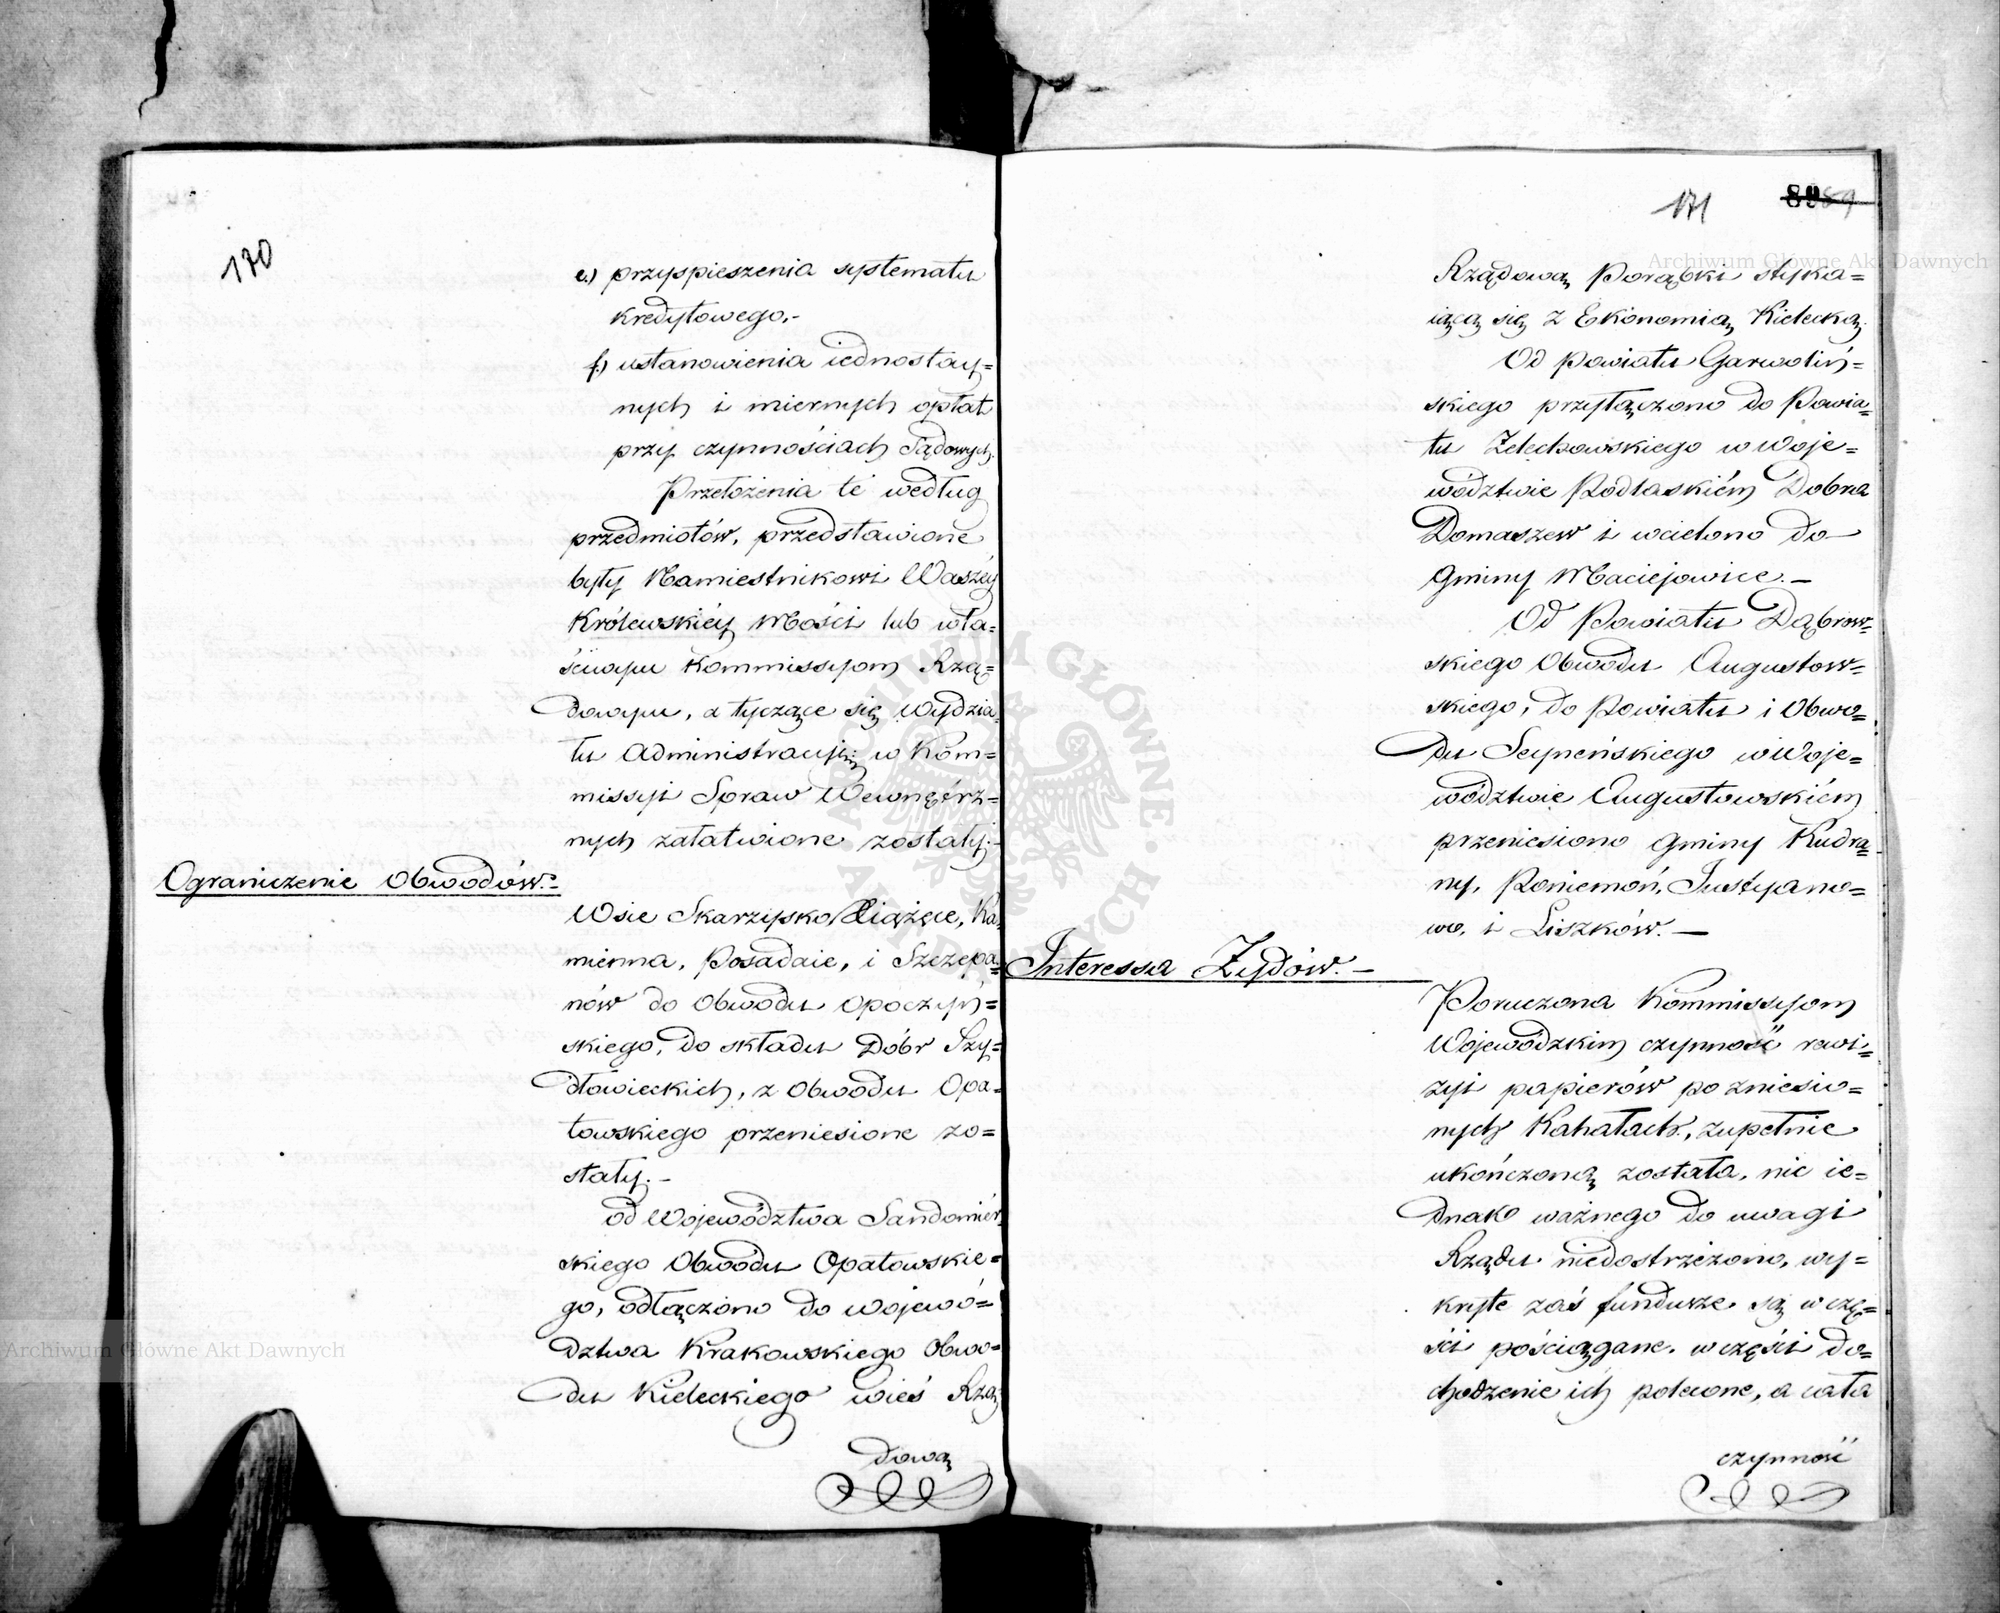 170
e.) przyspieszenia systematu
kredytowego.-
f.) ustanowienia iednostay=
nych i miernych opłat
przy czynnościach Sądowych.
Przełożenia te według
przedmiotów, przedstawione
były Namiestnikowi Waszey
Królewskiéy Mości lub wła=
ściwym Kommissyom Rzą=
dowym, a tyczące się Wydzia=
łu Administracyi w Kom=
missyi Spraw Wewnętrz=
nych załatwione zostały.-
Ograniczenie Obwodów.-
Wsie Skarzysko Xiążęce, Ka=
mienna, Posadaie, i Szczepa=
nów do Obwodu Opoczyń=
skiego, do składu Dóbr Szy=
dłowieckich, z Obwodu Opa=
towskiego przeniesione zo=
stały.-
od Województwa Sandomiér=
skiego Obwodu Opatowskie=
go, odłączono do Wojewó=
dztwa Krakowskiego Obwo=
du Kieleckiego wieś Rzą=
dową
171
89 89
Rządową Porąbki styka=
iącą się z Ekonomią Kielecką.
Od Powiatu Garwoliń=
skiego przyłączono do Powia=
tu Zelechowskiego w Woje=
wództwie Podlaskiém Dobra
Domaszew i wcielono do
Gminy Maciejowice.-
Od Powiatu Dąbrow=
skiego Obwodu Augustow=
skiego, do Powiatu i Obwo=
du Seyneńskiego w Woje=
wództwie Augustowskiém
przeniesiono Gminy Kudra=
ny, Poniemoń, Justyano=
wo, i Liszków.-
Interessa Żydów.-
Poruczona Kommissyom
Wojewódzkim czynność rewi=
zyi papierów po zniesio=
nych Kahałach, zupełnie
ukończoną została, nic ie=
dnak ważnego do uwagi
Rządu niedostrzeżono, wy=
kryte zaś fundusze są w czę=
ści pościągane, w części do=
chodzenie ich polecone, a cała
czynność
Archiwum Główne Akt Dawnych
Archiwum Główne Akt Dawnych
ARCHIWUM GŁÓWNE AKT DAWNYCH